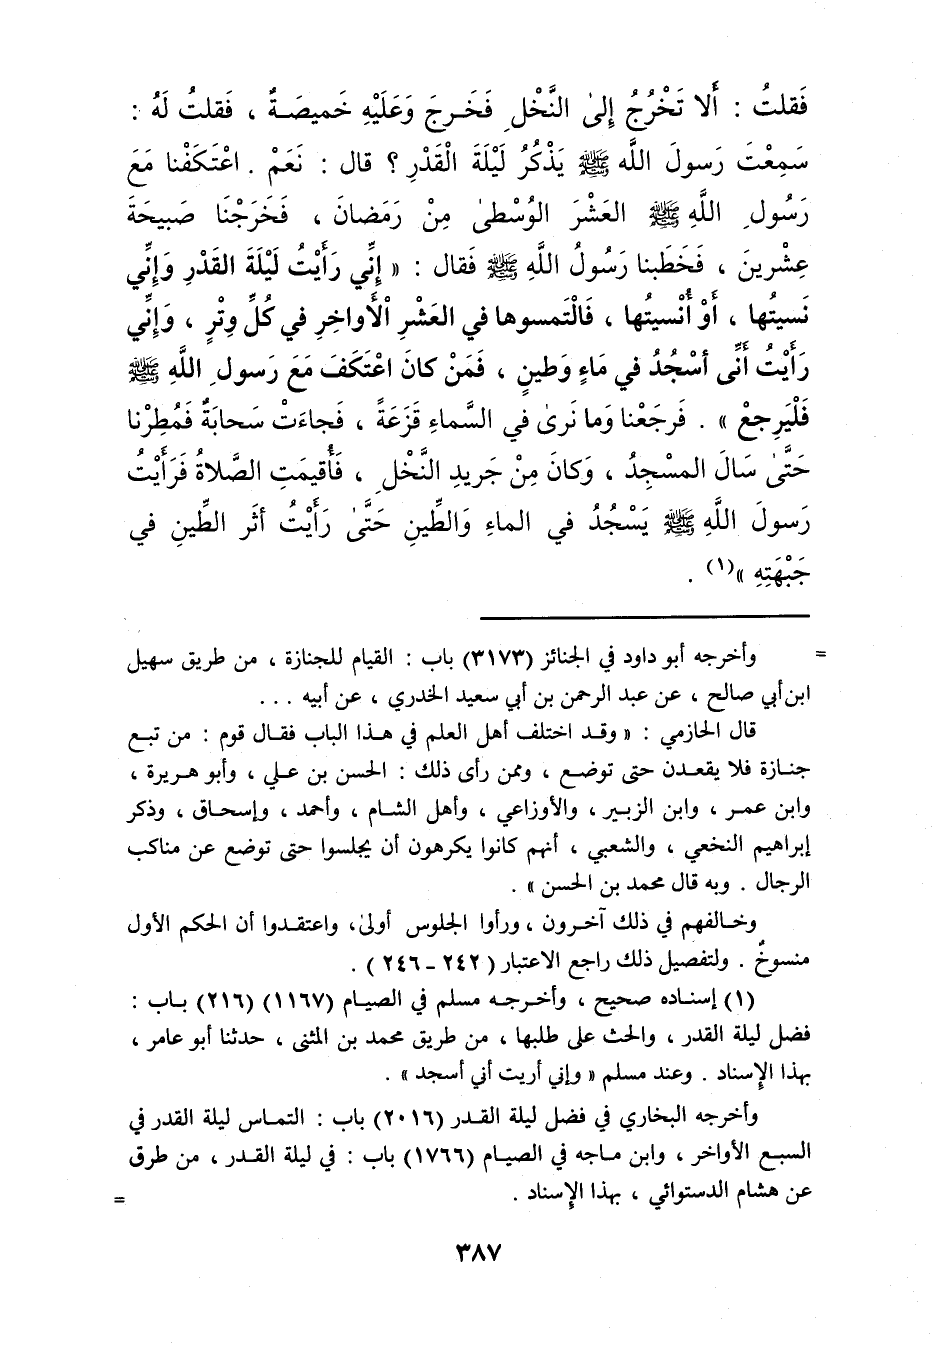 فَقلتُ : أَلا تَخْرُجُ إِلىٰ النَّخْلِ فَخَـرجَ وَعَلَيْهِ خَميصَـةٌ ، فَقلتُ لَهُ :
سَمِعْتَ رَسولَ اللَّه ﷺ يَذْكُرُ لَيْلَةَ الْقَدْرِ ؟ قال : نَعَمْ . اعْتَكَفْنا مَعَ
رَسُولِ اللَّهِ ﷺ العَشْرَ الوُسْطىٰ مِنْ رَمَضانَ ، فَخَرَجْنَا صَبيحَةَ
عِشْرينَ ، فَخَطَبنا رَسُولُ اللَّهِ ﷺ فَقال : « إِنِّي رَأَيْتُ لَيْلَةَ القَدْرِ وَإِنِّي
نَسيتُها ، أَوْ أُنْسيتُها ، فَالْتَمسوها في العَشْرِ الْأَواخِرِ في كُلِّ وِتْرٍ ، وَإِنِّي
رَأَيْتُ أَنِّى أسْجُدُ في مَاءٍ وَطينٍ ، فَمَنْ كانَ اعْتَكَفَ مَعَ رَسولِ اللَّهِ ﷺ
فَلْيَرجِعْ » . فَرجَعْنا وَما نَرىٰ في السَّماءِ قَزَعَةً ، فَجاءَتْ سَحابَةٌ فَمُطِرْنا
حَتَّىٰ سَالَ المسْجِدُ ، وَكانَ مِنْ جَريدِ النَّخْلِ ، فَأُقيمَتِ الصَّلاةُ فَرَأَيْتُ
رَسولَ اللَّهِ ﷺ يَسْجُدُ في الماءِ وَالطِّينِ حَتَّىٰ رَأَيْتُ أثَر الطِّينِ في
جَبْهَتِهِ »(١) .
= وأخرجه أبو داود في الجنائز (٣١٧٣) باب : القيام للجنازة ، من طريق سهيل
ابن أبي صالح ، عن عبد الرحمن بن أبي سعيد الخدري ، عن أبيه . . .
قال الحازمي : « وقـد اختلف أهل العلم في هـذا الباب فقـال قوم : من تبع
جنـازة فلا يقعـدن حتى توضـع ، وممن رأى ذلك : الحسن بن عـلي ، وأبو هـريرة ،
وابن عمـر ، وابن الزبـير ، والأوزاعي ، وأهل الشـام ، وأحمد ، وإسحـاق ، وذكر
إبراهيم النخعي ، والشعبي ، أنهم كانوا يكرهون أن يجلسوا حتى توضع عن مناكب
الرجال . وبه قال محمد بن الحسن » .
وخـالفهم في ذلك آخـرون ، ورأوا الجلوس أولىٰ، واعتقـدوا أن الحكم الأول
منسوخٌ . ولتفصيل ذلك راجع الاعتبار ( ٢٤٢ - ٢٤٦ ) .
(١) إسنـاده صحيح ، وأخـرجـه مسلم في الصيـام (١١٦٧) (٢١٦) بـاب :
فضل ليلة القدر ، والحث على طلبها ، من طريق محمد بن المثنى ، حدثنا أبو عامر ،
بهذا الإسناد . وعند مسلم « وإني أريت أني أسجد » .
وأخرجه البخاري في فضل ليلة القـدر (٢٠١٦) باب : التمـاس ليلة القدر في
السبع الأواخر ، وابن مـاجه في الصيـام (١٧٦٦) باب : في ليلة القـدر ، من طرق
عن هشام الدستوائي ، بهذا الإسناد . =
٣٨٧